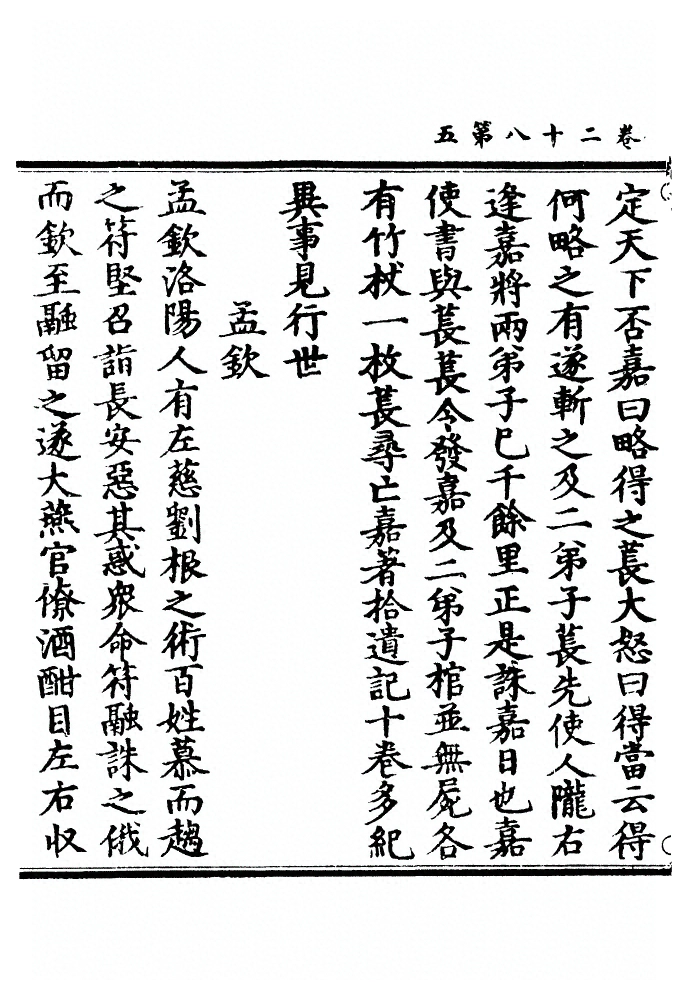 卷二十八第五
定天下否嘉曰略得之萇大怒曰得當云得
何略之有遂斬之及二弟子萇先使人隴右
逢嘉將兩弟子已千餘里正是誅嘉日也嘉
使書與萇萇令發嘉及二弟子棺並無屍各
有竹杖一枚萇尋亡嘉著拾遺記十卷多紀
異事見行世
孟欽
孟欽洛陽人有左慈劉根之術百姓慕而趨
之符堅召詣長安惡其惑眾命符融誅之俄
而欽至融留之遂大燕官僚酒酣目左右收